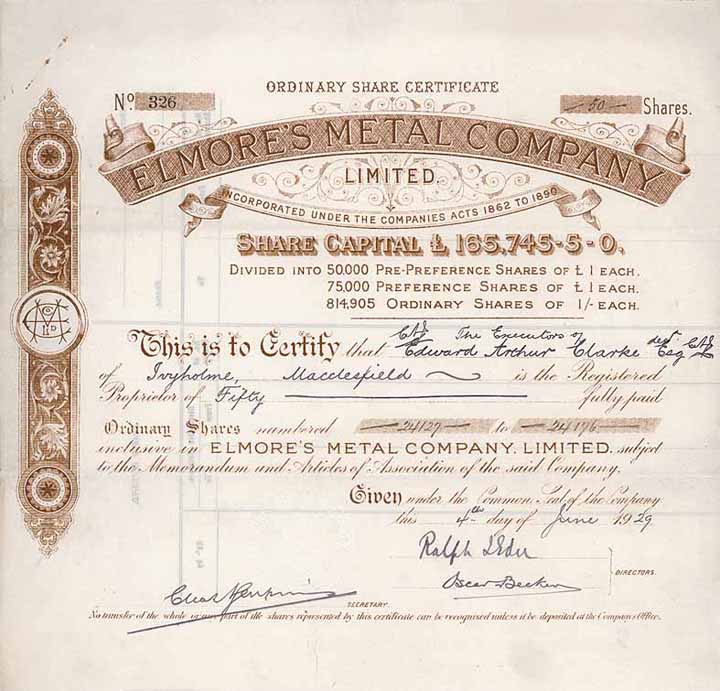 ORDINARY SHARE CERTIFICATE
No 326
— 50 — Shares.
ELMORE'S METAL COMPANY
LIMITED.
INCORPORATED UNDER THE COMPANIES ACTS 1862 TO 1890
SHARE CAPITAL £ 165,745-5-0.
DIVIDED INTO 50,000 PRE-PREFERENCE SHARES OF £1 EACH.
75,000 PREFERENCE SHARES OF £1 EACH.
814,905 ORDINARY SHARES OF 1/- EACH.
The Executors of
This is to Certify that Edward Arthur Clarke Esq decd
of Ivyholme, Macclesfield is the Registered
Proprietor of Fifty fully paid
Ordinary Shares numbered — 24127 — to — 24176 —
inclusive in ELMORE'S METAL COMPANY, LIMITED. subject
to the Memorandum and Articles of Association of the said Company.
Given under the Common Seal of the Company
this 4th day of June 1929
Ralph
Oscar Becker
DIRECTORS.
SECRETARY.
No transfer of the whole or any part of the shares represented by this certificate can be recognised unless it be deposited at the Company's Office.